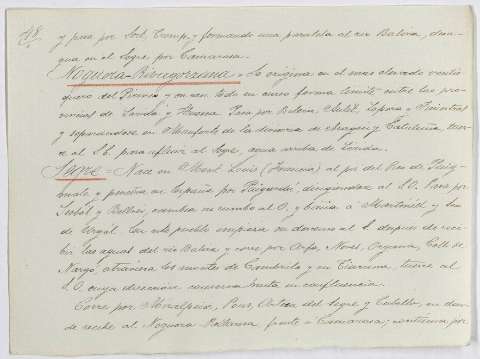 48.
y pasa por Sort, Tremp, y formando una paralela al río Balira, desa-
gua en el Segre por Camarasa.
Noguera-Rivagorzana = Se origina en el mas elevado ventis-
quero del Pirineo y en casi todo su curso forma limite entre las pro-
vincias de Lerida y Huesca. Pasa por
y separandose en Monfonte de la divisoria de Aragon y Cataluña, tuer-
ce al S.E. para afluir al Segre, agua arriba de Lerida.
Segre = Nace en Mont Louis (Francia) al pié del Pico de Puig-
mal y penetra en España por Puigcerdá; dirigiendose al S.O. Pasa por
y Bellver, cambia su rumbo al O. y
de Urgel. En este pueblo empieza su descenso al S. despues de reci-
bir las aguas del río Balira y corre por Orfa, Noves, Organa, Coll de
Nargó, atraviesa los montes de y en Tiurana, tuerce al
S.O. cuya direccion conserva hasta su confluencia.
Corre por Pons, Artesa del Segre y Cubells, en don-
de recibe al Noguera Pallaresa frente a Camarasa; continua por